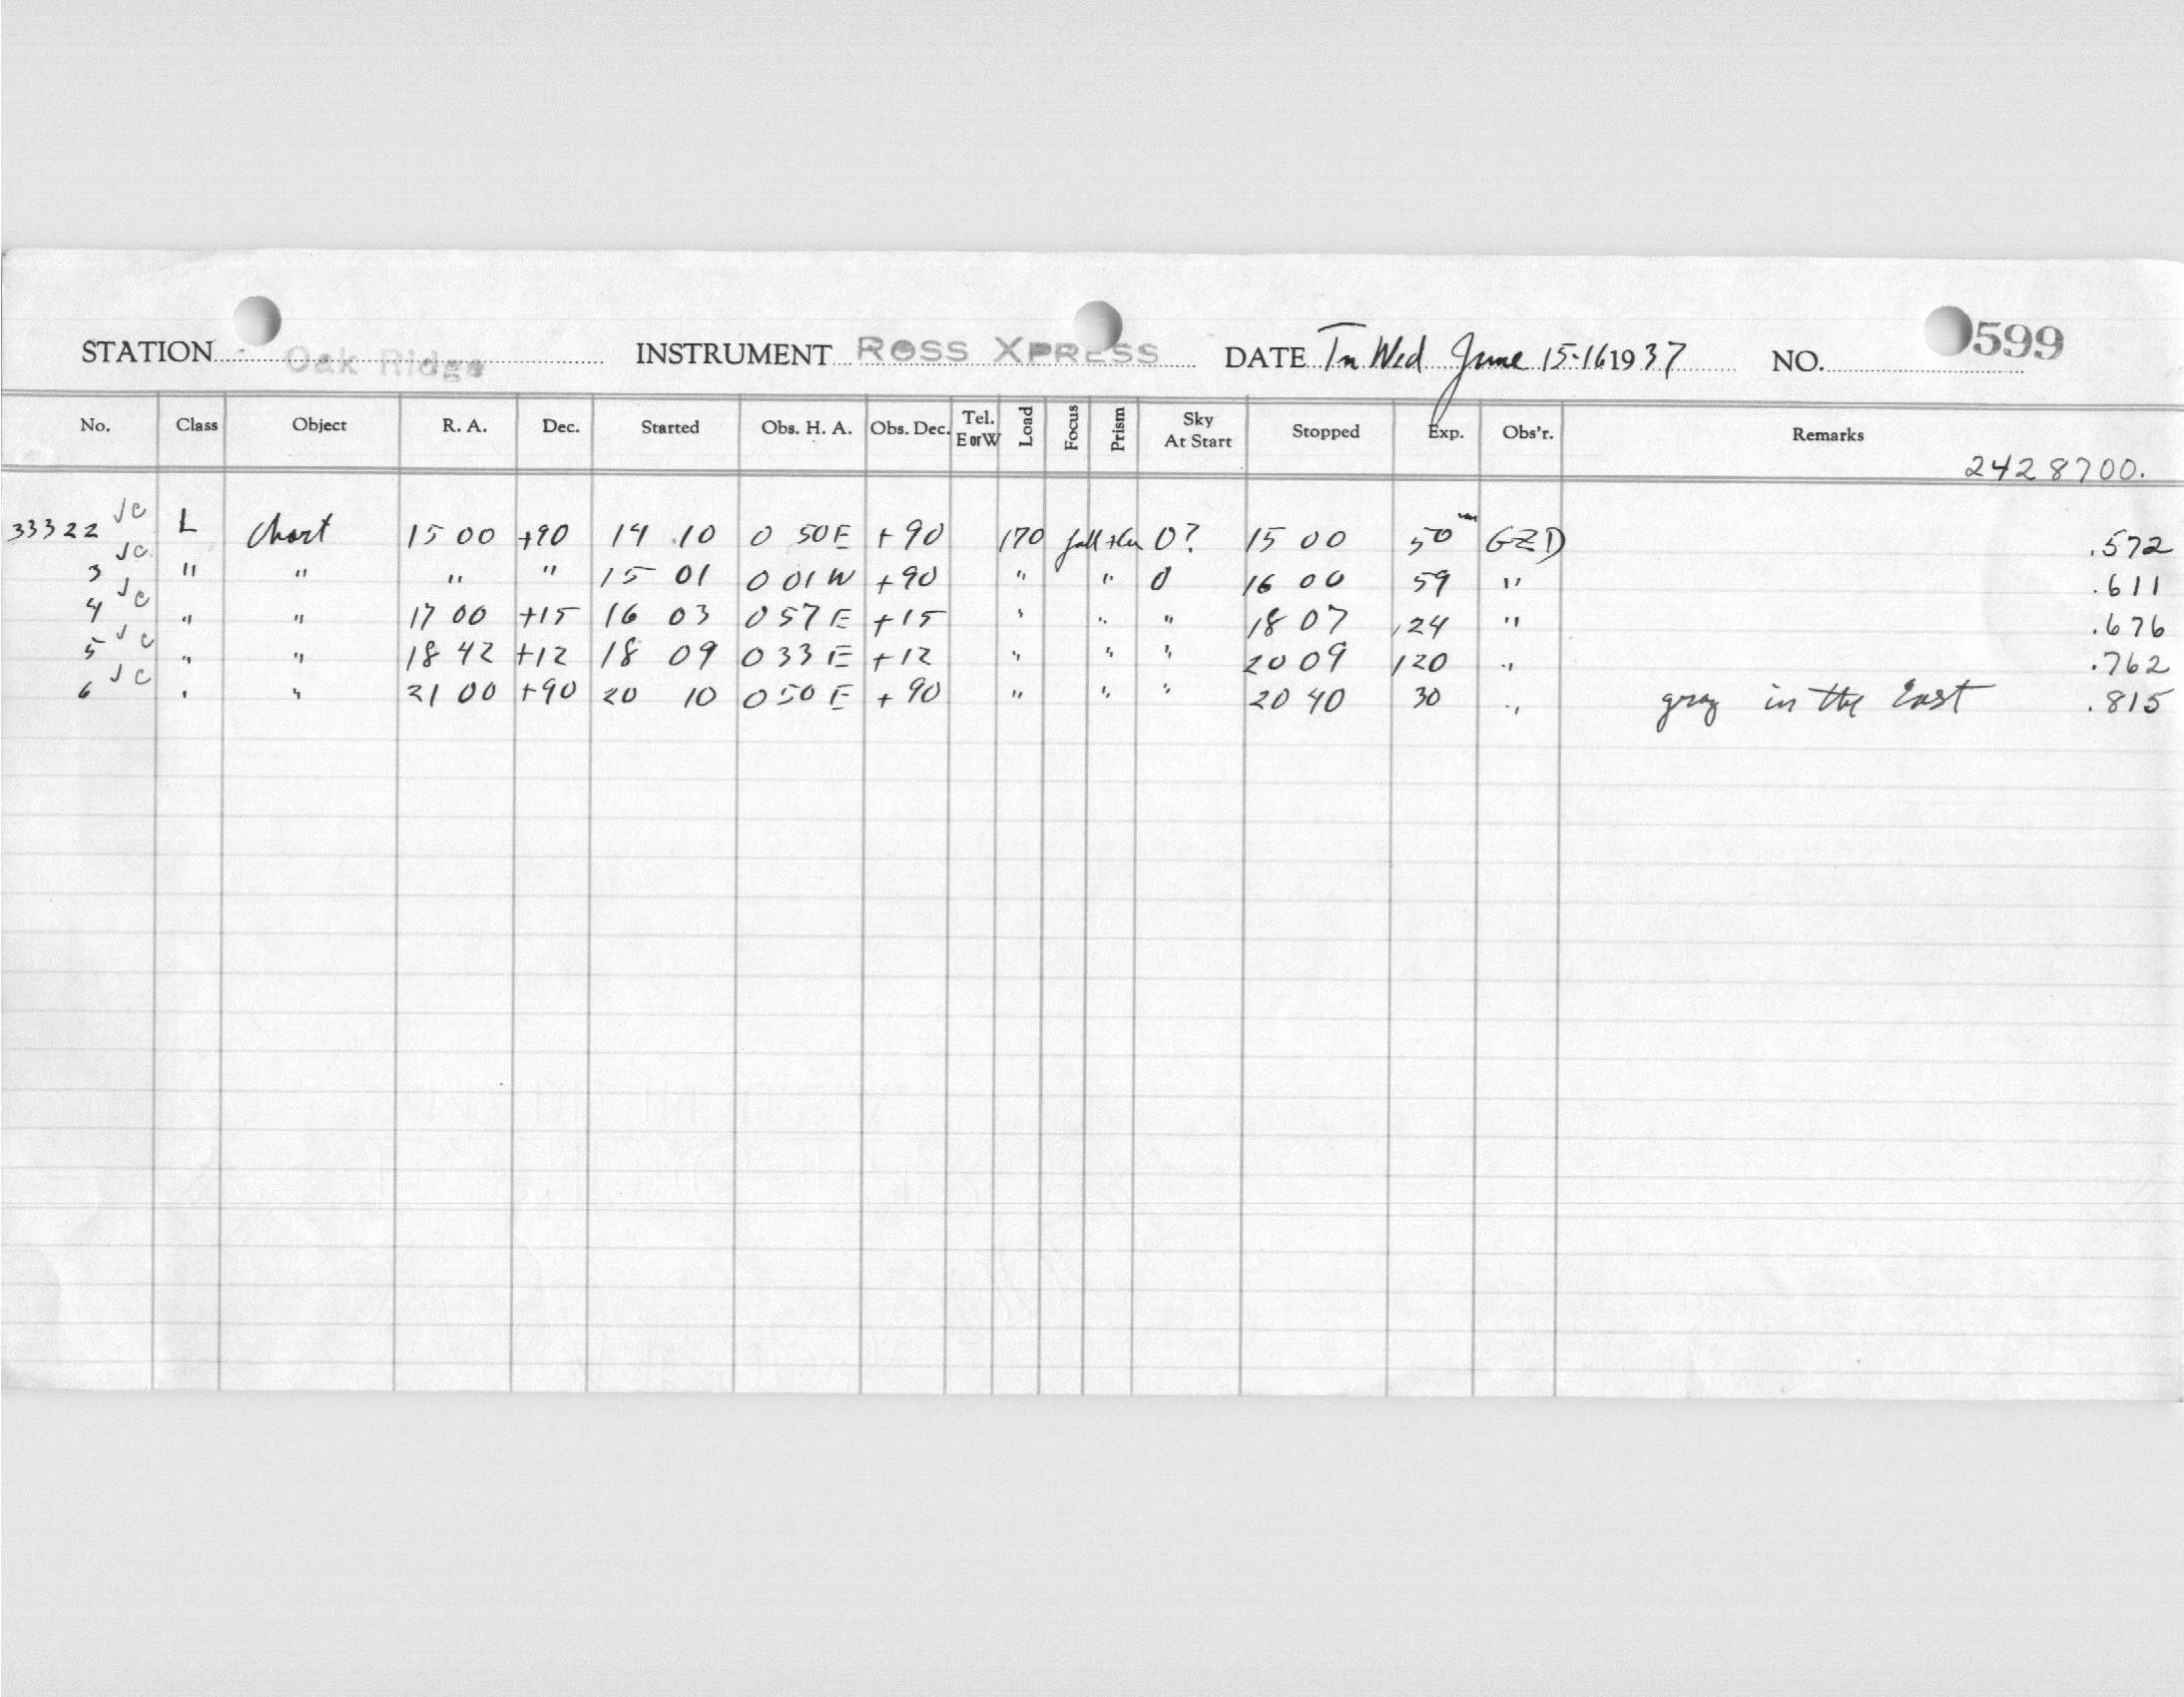 STATION Oak Ridge INSTRUMENT ROSS XPRESS DATE Tu Wed June 15-16 1937 NO. 599
No. Class Object R. A. Dec. Started Obs. H. A. Obs. Dec. Tel. E or W Load Focus Prism Sky At Start Stopped Exp. Obs'r. Remarks
2428700.
33322 JC L Chart 15 00 +90 14 10 0 50E +90 170 0? 15 00 50 m GZD .572
3 JC " " " " 15 01 0 01W +90 " " 0 16 00 59 " .611
4 JC " " 17 00 +15 16 03 0 57E +15 " " " 18 07 124 " .676
5 JC " " 18 42 +12 18 09 0 33E +12 " " " 20 09 120 " .762
6 JC " " 21 00 +90 20 10 0 50E +90 " " " 20 40 30 " gray in the East .815